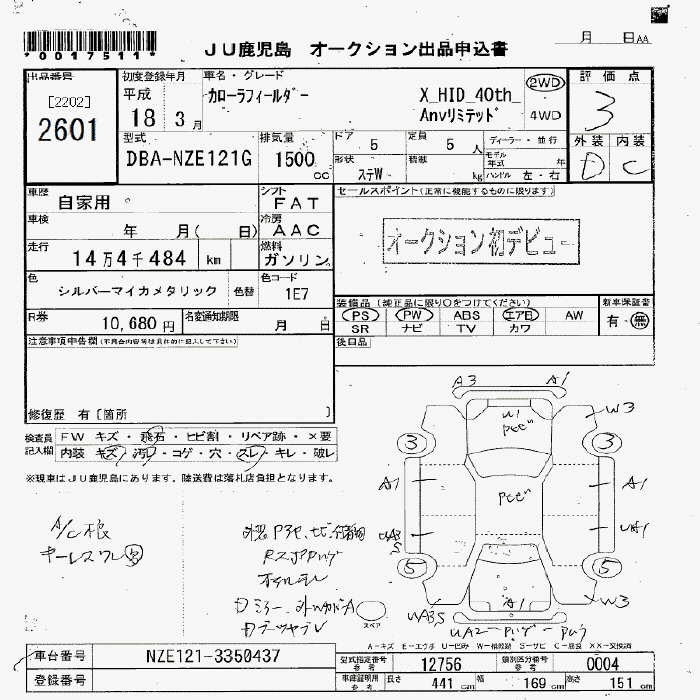 *0017511*
JU鹿児島 オークション出品申込書
月 日AA
出品番号
[2202]
2601
初度登録年月
平成
18 3月
車名・グレード
カローラフィールダー X_HID_40th_
Anvリミテッド
2WD
4WD
評価点
3
外装 内装
D C
型式
DBA-NZE121G
排気量
1500 cc
ドア 5
定員 5 人
ディーラー・並行
形状 ステW
積載 kg
モデル年式 年
ハンドル 左・右
車歴 自家用
シフト FAT
車検 年 月( 日)
冷房 AAC
走行 14万4千484 km
燃料 ガソリン
色 シルバーマイカメタリック 色替
色コード 1E7
R券 10,680円
名変通知期限 月 日
セールスポイント(正常に機能するものに限ります)
オークション初デビュー
装備品(純正品に限り○をつけてください)
新車保証書
PS PW ABS エアB AW
SR ナビ TV カワ
有・無
後日品
注意事項申告欄(不具合内容等は具体的に記入して下さい)
修復歴 有[箇所 ]
検査員記入欄
FW キズ・飛石・ヒビ割・リペア跡・×要
内装 キズ・汚レ・コゲ・穴・スレ・キレ・破レ
※現車はJU鹿児島にあります。陸送費は落札店負担となります。
A3 A1
U1
W3
3 3
A1 A1
UA1
5 5
A1
W3
スペア
A=キズ E=エクボ U=凹み W=補修跡 S=サビ C=腐食 XX=交換済
車台番号 NZE121-3350437
登録番号
型式指定番号 参考 12756
類別区分番号 参考 0004
車庫証明用 参考 長さ 441 cm 幅 169 cm 高さ 151 cm